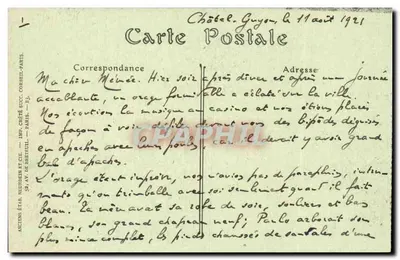 1
Châtel-Guyon, le 11 août 1921
Carte Postale
Correspondance
Adresse
Ma chère Mémée. Hier soir après dîner et après une journée
accablante, un orage formidable a éclaté sur la ville.
Nous écoutions la musique au casino et nous étions placés
de façon à voir défiler devant nous des bipèdes déguisés
en apache avec leurs poules car il devait y avoir grand
bal d'apaches.
L'orage étant imprévu, nous n'avions pas de parapluies, instru-
ments qu'on trimballe avec soi seulement quand il fait
beau. Ta mère avait sa robe de soie, souliers et bas
blancs, son grand chapeau neuf; arborait son
plus mince complet, les pieds chaussés de sandales d'une
ANCIENS ÉTAB. NEURDEIN ET CIE. IMP. CRÉTÉ SUCC. CORBEIL-PARIS.